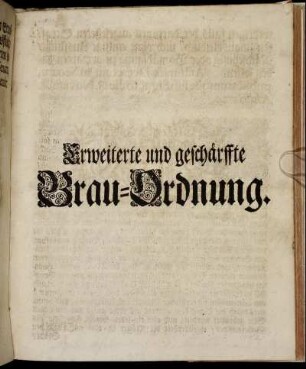 Erweiterte und geschärffte
Brau-Ordnung.